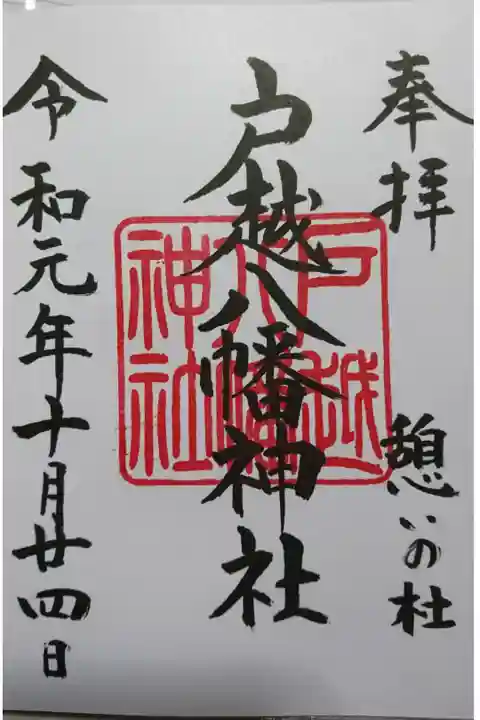 奉拝
憩いの杜
戸越八幡神社
戸越八幡神社
令和元年十月廿四日